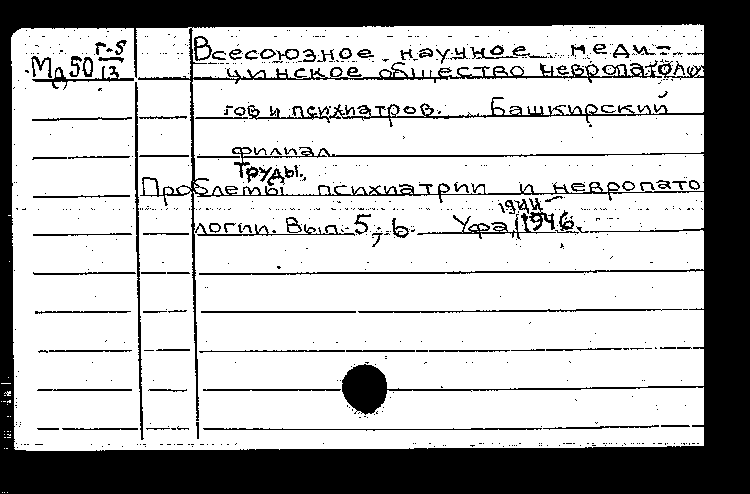 Г-5
Мд50 13
Всесоюзное научное меди-
цинское общество невропатоло
гов и психиатров. Башкирский
филиал.
Труды.
Проблемы психиатрии и невропато
логии. Вып. 5, 6. Уфа, 1944-
1946.